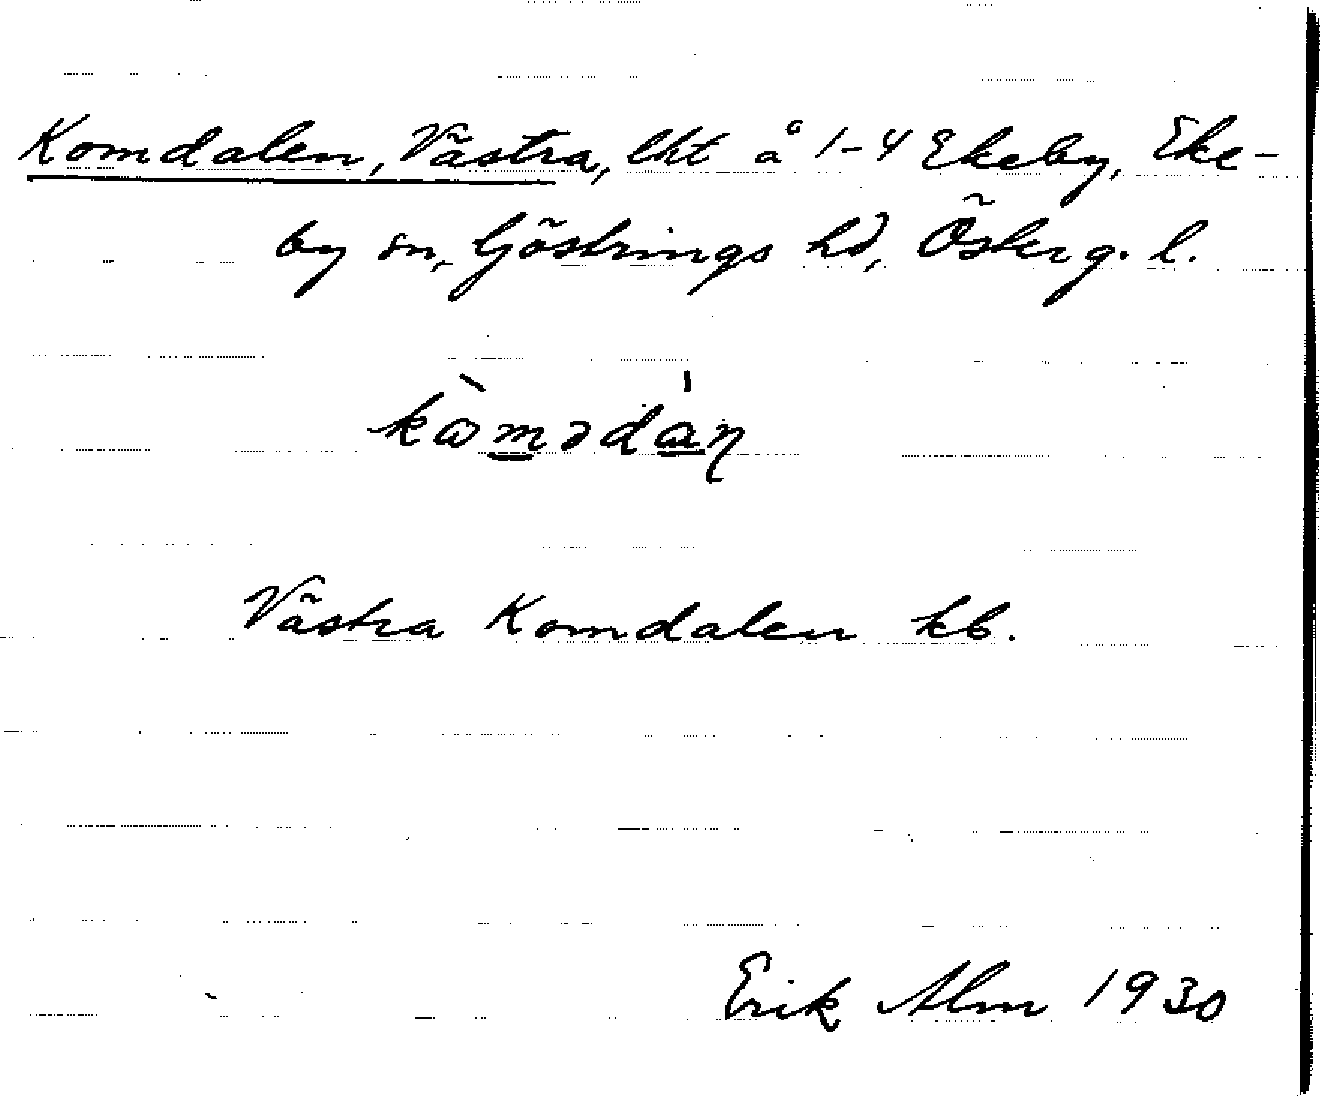 Komdalen, Västra, lht å 1-4 Ekeby, Eke-
by sn, Göstrings hd, Österg. l.
Västra Komdalen kb.
Erik Alm 1930